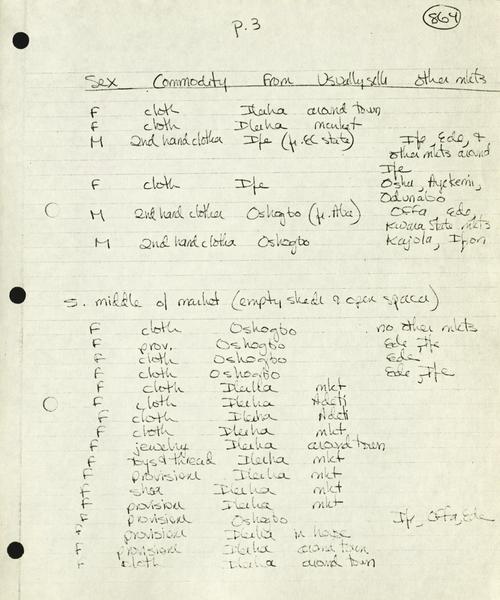 p.3
864
Sex Commodity From Usually sells other mkts
F cloth Ilesha around town
F cloth Ilesha market
M 2nd hand clothes Ife (fr. EC state) Ife, Ede, &
other mkts around
Ife
F cloth Ife Oshu, Ayekemi,
Odunabo
M 2nd hand clothes Oshogbo (fr. Aba) Offa, Ede,
Kwara State mkts
M 2nd hand clothes Oshogbo Kajola, Ipon
5. middle of market (empty sheds & open spaces)
F cloth Oshogbo no other mkts
F prov. Oshogbo Ede, Ife
F cloth Oshogbo Ede
F cloth Oshogbo Ede, Ife
F cloth Ilesha mkt
F cloth Ilesha
F cloth Ilesha
F cloth Ilesha mkt
F jewelry Ilesha around town
F toys & thread Ilesha mkt
F provisions Ilesha mkt
F shoes Ilesha mkt
F provisions Ilesha mkt
F provisions Oshogbo Ife, Offa, Ede
F provisions Ilesha in house
F provisions Ilesha around town
F cloth Ilesha around town